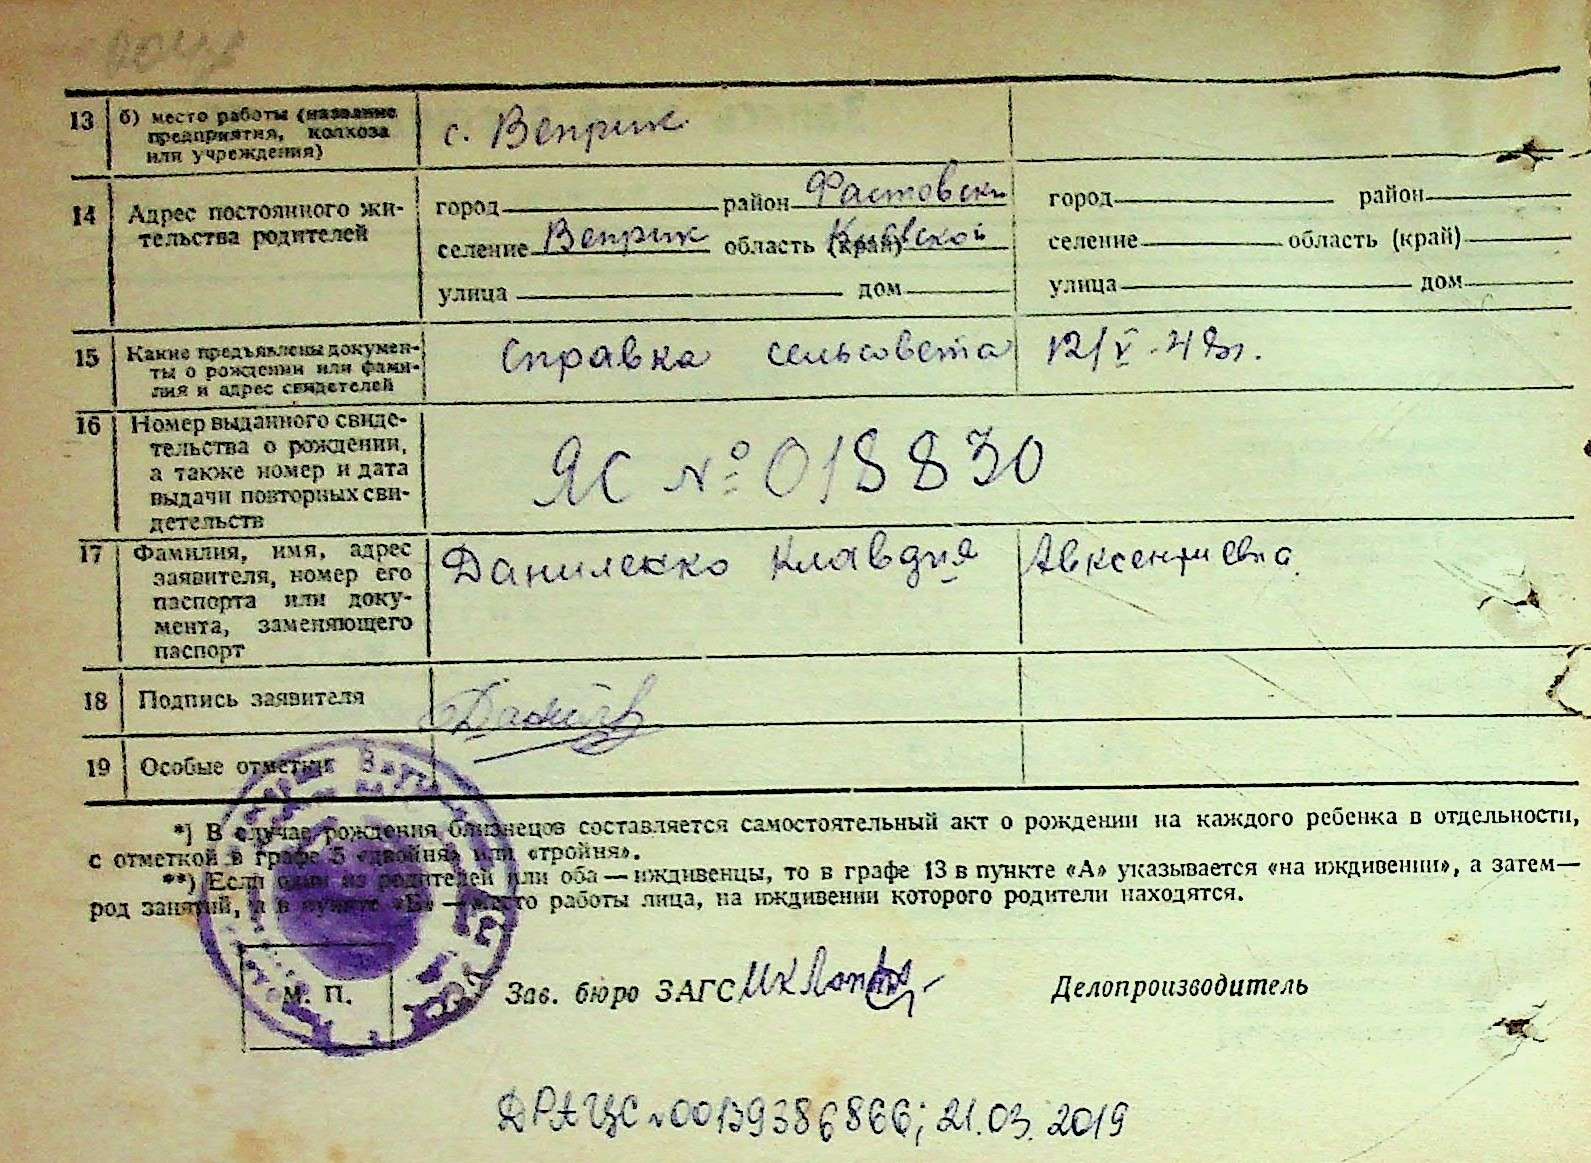 13 б) место работы (название
предприятия, колхоза
или учреждения)
с. Веприк
14 Адрес постоянного жи-
тельства родителей
город район Фастовски
селение Веприк область (край) Киевской
улица дом
город район
селение область (край)
улица дом
15 Какие предъявлены докумен-
ты о рождении или фами-
лия и адрес свидетелей
Справка сельсовета 12/V-48г.
16 Номер выданного свиде-
тельства о рождении,
а также номер и дата
выдачи повторных сви-
детельств
ЯС № 018830
17 Фамилия, имя, адрес
заявителя, номер его
паспорта или доку-
мента, заменяющего
паспорт
Даниленко Клавдия Авксентиевна
18 Подпись заявителя
19 Особые отметки
*) В случае рождения близнецов составляется самостоятельный акт о рождении на каждого ребенка в отдельности,
с отметкой в графе 5 «двойня» или «тройня».
**) Если один из родителей или оба — иждивенцы, то в графе 13 в пункте «А» указывается «на иждивении», а затем —
род занятий, а в пункте «Б» — место работы лица, на иждивении которого родители находятся.
М. П.
Зав. бюро ЗАГС
Делопроизводитель
ДРАЦС №00139386866; 21.03.2019